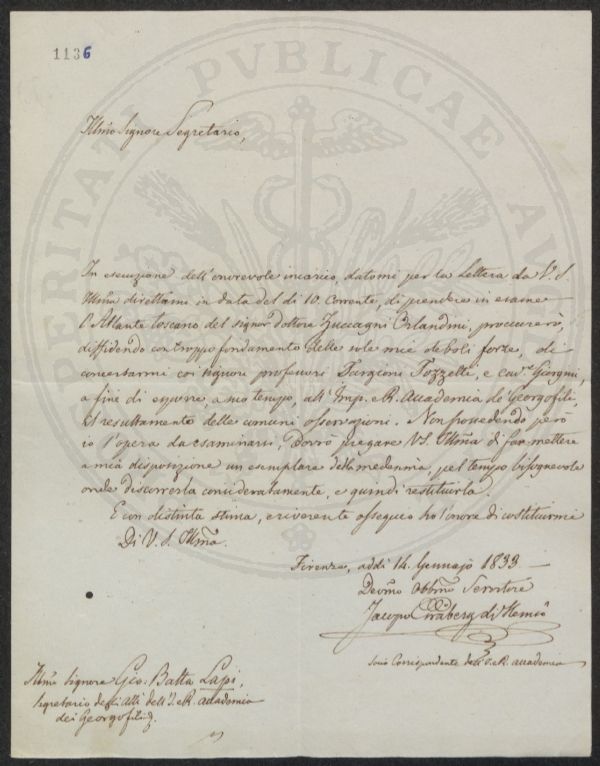 1136
Illmo Signore Segretario,
In esecuzione dell'onorevole incarico, datomi per la Lettera da V. S.
Illma direttami in data del dì 10. Corrente, di prendere in esame
l'Atlante toscano del signor dottore Zuccagni Orlandini, procurerò,
diffidendo con troppo fondamento delle sole mie deboli forze, di
concertarmi coi signori professori Targioni Tozzetti, e cavre Giorgini,
a fine di esporre, a suo tempo, all'Imp. e R. Accademia de' Georgofili,
il resultamento delle comuni osservazioni. Non possedendo però
io l'opera da esaminarsi, dovrò pregare V.S. Illma di far mettere
a mia disposizione un esemplare della medesima, pel tempo bisognevole
onde discorrerla consideratamente, e quindi restituirla.
E con distinta stima, e riverente ossequio ho l'onore di costituirmi
Di V. S. Illma.
Firenze, addì 14. Gennajo 1833
Devmo Obbmo Servitore
Jacopo Graberg di Hemsö
Socio Corrispondente dell'I. e R. accademia
Illmo Signore Gio. Batta Lapi,
Segretario degli Atti dell'I. e R. accademia
dei Georgofili
PROSPERITATI PVBLICAE AVGENDAE